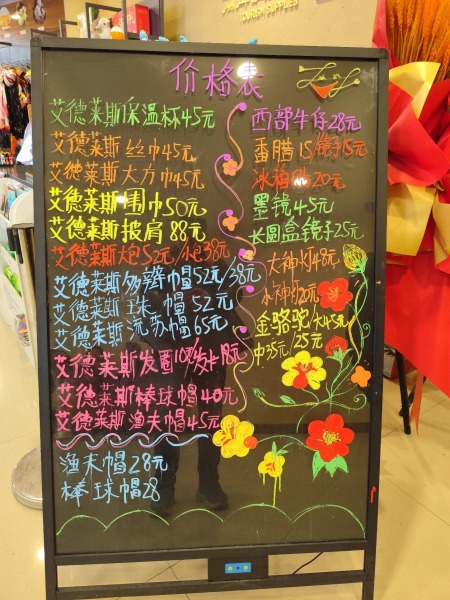 价格表
艾德莱斯保温杯45元
艾德莱斯丝巾45元
艾德莱斯大方巾45元
艾德莱斯围巾50元
艾德莱斯披肩88元
艾德莱斯炮52元/小包38元
艾德莱斯多辫帽52元/38元
艾德莱斯珠帽52元
艾德莱斯流苏帽65元
艾德莱斯发圈10元/发卡18元
艾德莱斯棒球帽40元
艾德莱斯渔夫帽45元
渔夫帽28元
棒球帽28
西部牛仔28元
番腊15/镜子15元
冰箱贴20元
墨镜45元
长圆盒镜子25元
大神灯48元
小神灯20元
金骆驼/大45元
中35元/25元